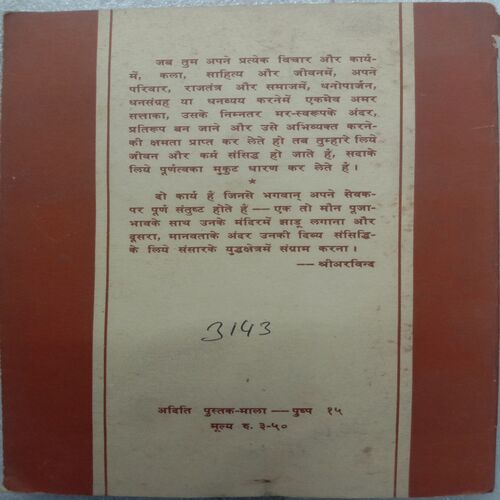 जब तुम अपने प्रत्येक विचार और कार्य-
में, कला, साहित्य और जीवनमें, अपने
परिवार, राजतंत्र और समाजमें, धनोपार्जन,
धनसंग्रह या धनव्यय करनेमें एकमेव अमर
सत्ताका, उसके निम्नतर मर-स्वरूपके अंदर,
प्रतिरूप बन जाने और उसे अभिव्यक्त करने-
की क्षमता प्राप्त कर लेते हो तब तुम्हारे लिये
जीवन और कर्म संसिद्ध हो जाते हैं, सदाके
लिये पूर्णत्वका मुकुट धारण कर लेते हैं ।
*
दो कार्य हैं जिनसे भगवान् अपने सेवक-
पर पूर्ण संतुष्ट होते हैं -- एक तो मौन पूजा-
भावके साथ उनके मंदिरमें झाडू लगाना और
दूसरा, मानवताके अंदर उनकी दिव्य संसिद्धि-
के लिये संसारके युद्धक्षेत्रमें संग्राम करना ।
-- श्रीअरविन्द
3143
अदिति पुस्तक-माला -- पुष्प १५
मूल्य रु. ३-५०